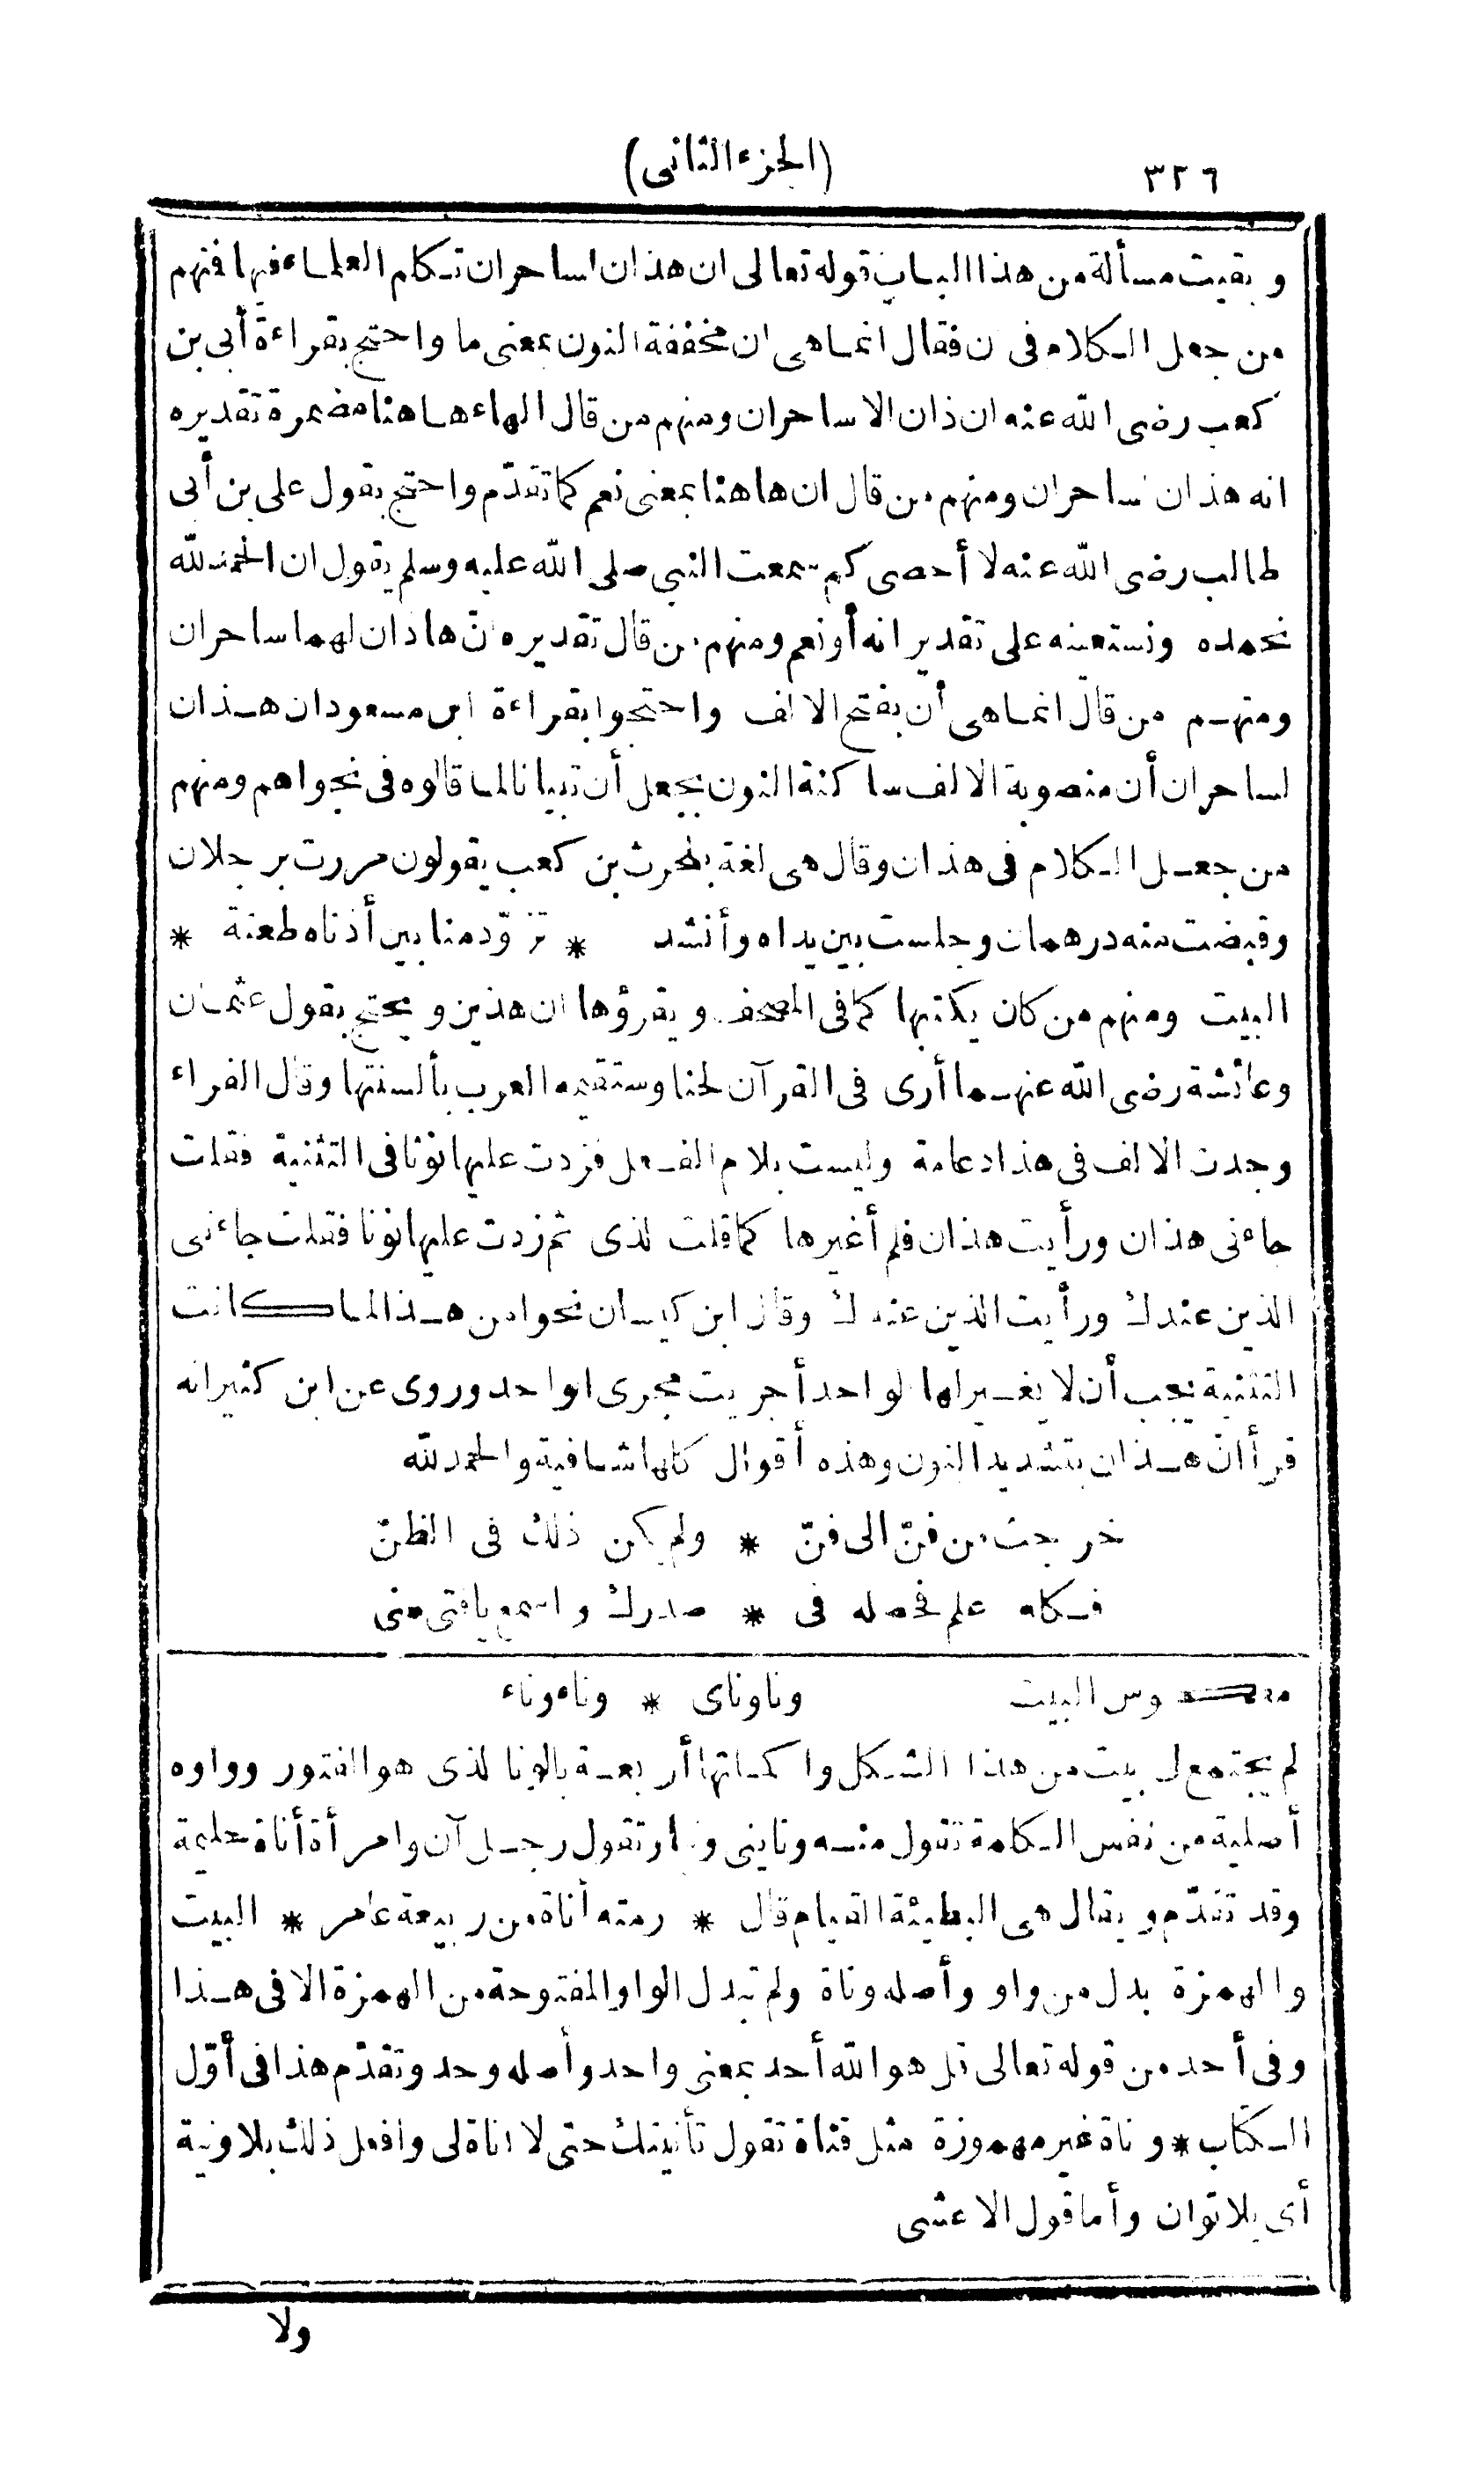 ٣٢٦
(الجزء الثانى)
وبقيت مسألة من هذا الباب قوله تعالى ان هذان لساحران تكلم العلماء فيها فمنهم
من جعل الكلام فى ن فقال انما هى ان مخففة النون بمعنى ما واحتج بقراءة أبى بن
كعب رضى الله عنه ان ذان الا ساحران ومنهم من قال الهاء هاهنا مضمرة تقديره
انه هذان لساحران ومنهم من قال ان هاهنا بمعنى نعم كما تقدّم واحتج بقول على بن أبى
طالب رضى الله عنه لا أحصى كم سمعت النبى صلى الله عليه وسلم يقول ان الحمد لله
نحمده ونستعينه على تقدير انه أو نعم ومنهم من قال تقديره انّ هاذان لهما ساحران
ومنهم من قال انما هى أن بفتح الالف واحتجوا بقراءة ابن مسعود ان هذان
لساحران أن منصوبة الالف ساكنة النون يجعل أن تبيانا لما قالوه فى نجواهم ومنهم
من جعل الكلام فى هذان وقال هى لغة بلحرث بن كعب يقولون مررت برجلان
وقبضت منه درهمان وجلست بين يداه وأنشد * تزوّد منا بين أذناه طعنة *
البيت ومنهم من كان يكتبها كما فى المصحف ويقرؤها ان هذين ويحتج بقول عثمان
وعائشة رضى الله عنهما أرى فى القرآن لحنا وستقيمه العرب بألسنتها وقال الفراء
وجدت الالف فى هذا دعامة وليست بلام الفعل فزدت عليها نونا فى التثنية فقلت
جاءنى هذان ورأيت هذان فلم أغيرها كما قلت لذى ثم زدت عليها نونا فقلت جاءنى
الذين عندك ورأيت الذين عندك وقال ابن كيسان نحوا من هذا لما كانت
التثنية يجب أن لا يغير لها الواحد أجريت مجرى الواحد وروى عن ابن كثير انه
قرأ انّ هذان بتشديد النون وهذه أقوال كلها شافية والحمد لله
خرجت من فنّ الى فنّ * ولم يكن ذلك فى الظنّ
فكله علم فحصله فى * صدرك واسمع يا فتى منى
معكوس البيت وناوناى * وناء وناء
لم يجتمع لى بيت من هذا الشكل واكملتها أربعة بالونا لذى هو الفتور وواوه
أصلية من نفس الكلمة تقول منه ونا ينى و تقول رجل آن وامرأة أناة حليمة
وقد تقدّم ويقال هى البطيئة القيام قال * رمته أناة من ربيعة عامر * البيت
والهمزة بدل من واو وأصله وناة ولم تبدل الواو المفتوحة من الهمزة الا فى هذا
وفى أحد من قوله تعالى قل هو الله أحد بمعنى واحد وأصله وحد وتقدّم هذا فى أوّل
الكتاب * وناة غير مهموزة مثل قناة تقول تأنيتك حتى لا اناة لى وافعل ذلك بلاونية
أى بلا توان وأما قول الاعشى
ولا